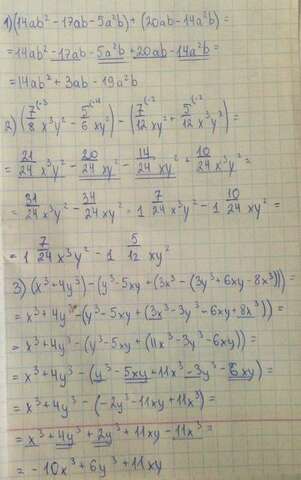 1)(14ab² - 17ab - 5a²b) + (20ab - 14a²b) =
= 14ab² - 17ab - 5a²b + 20ab - 14a²b =
= 14ab² + 3ab - 19a²b
2) (7/8 x³y² - 5/6 xy²) - (7/12 xy² + 5/12 x³y²) =
= 21/24 x³y² - 20/24 xy² - 14/24 xy² + 10/24 x³y² =
= 31/24 x³y² - 34/24 xy² = 1 7/24 x³y² - 1 10/24 xy² =
= 1 7/24 x³y² - 1 5/12 xy²
3) (x³ + 4y³) - (y³ - 5xy + (3x³ - (3y³ + 6xy - 8x³))) =
= x³ + 4y³ - (y³ - 5xy + (3x³ - 3y³ - 6xy + 8x³)) =
= x³ + 4y³ - (y³ - 5xy + (11x³ - 3y³ - 6xy)) =
= x³ + 4y³ - (y³ - 5xy + 11x³ - 3y³ - 6xy) =
= x³ + 4y³ - (-2y³ - 11xy + 11x³) =
= x³ + 4y³ + 2y³ + 11xy - 11x³ =
= - 10x³ + 6y³ + 11xy